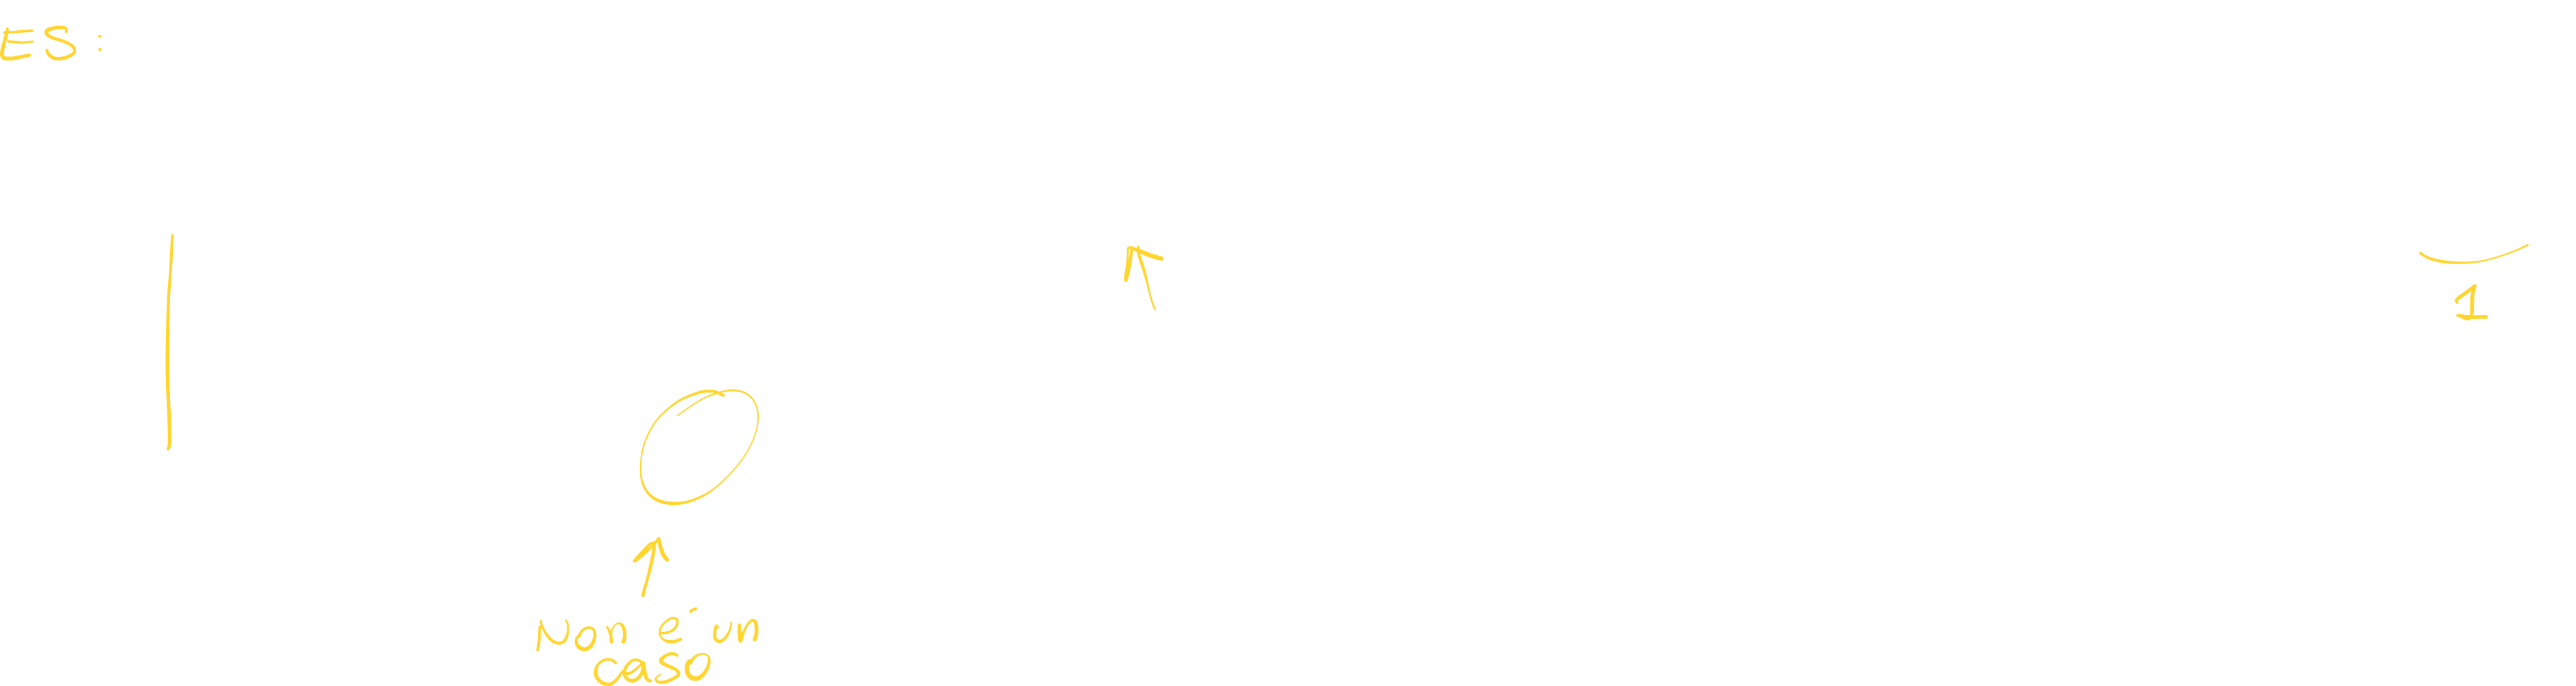 ES:
1
Non é un
caso